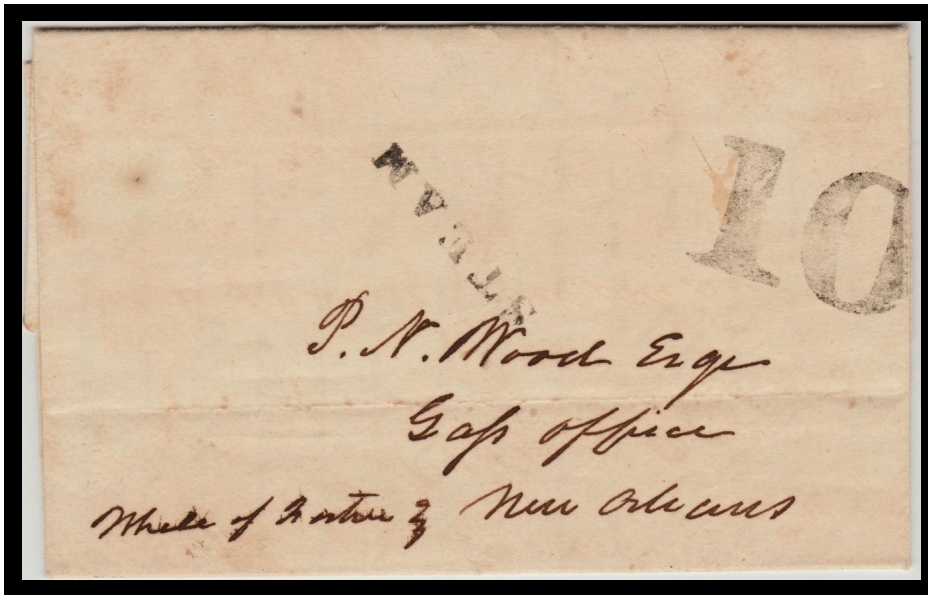 STEAM
10
P. N. Wood Esqr
Gass office
New Orleans
Wheel of Fortune